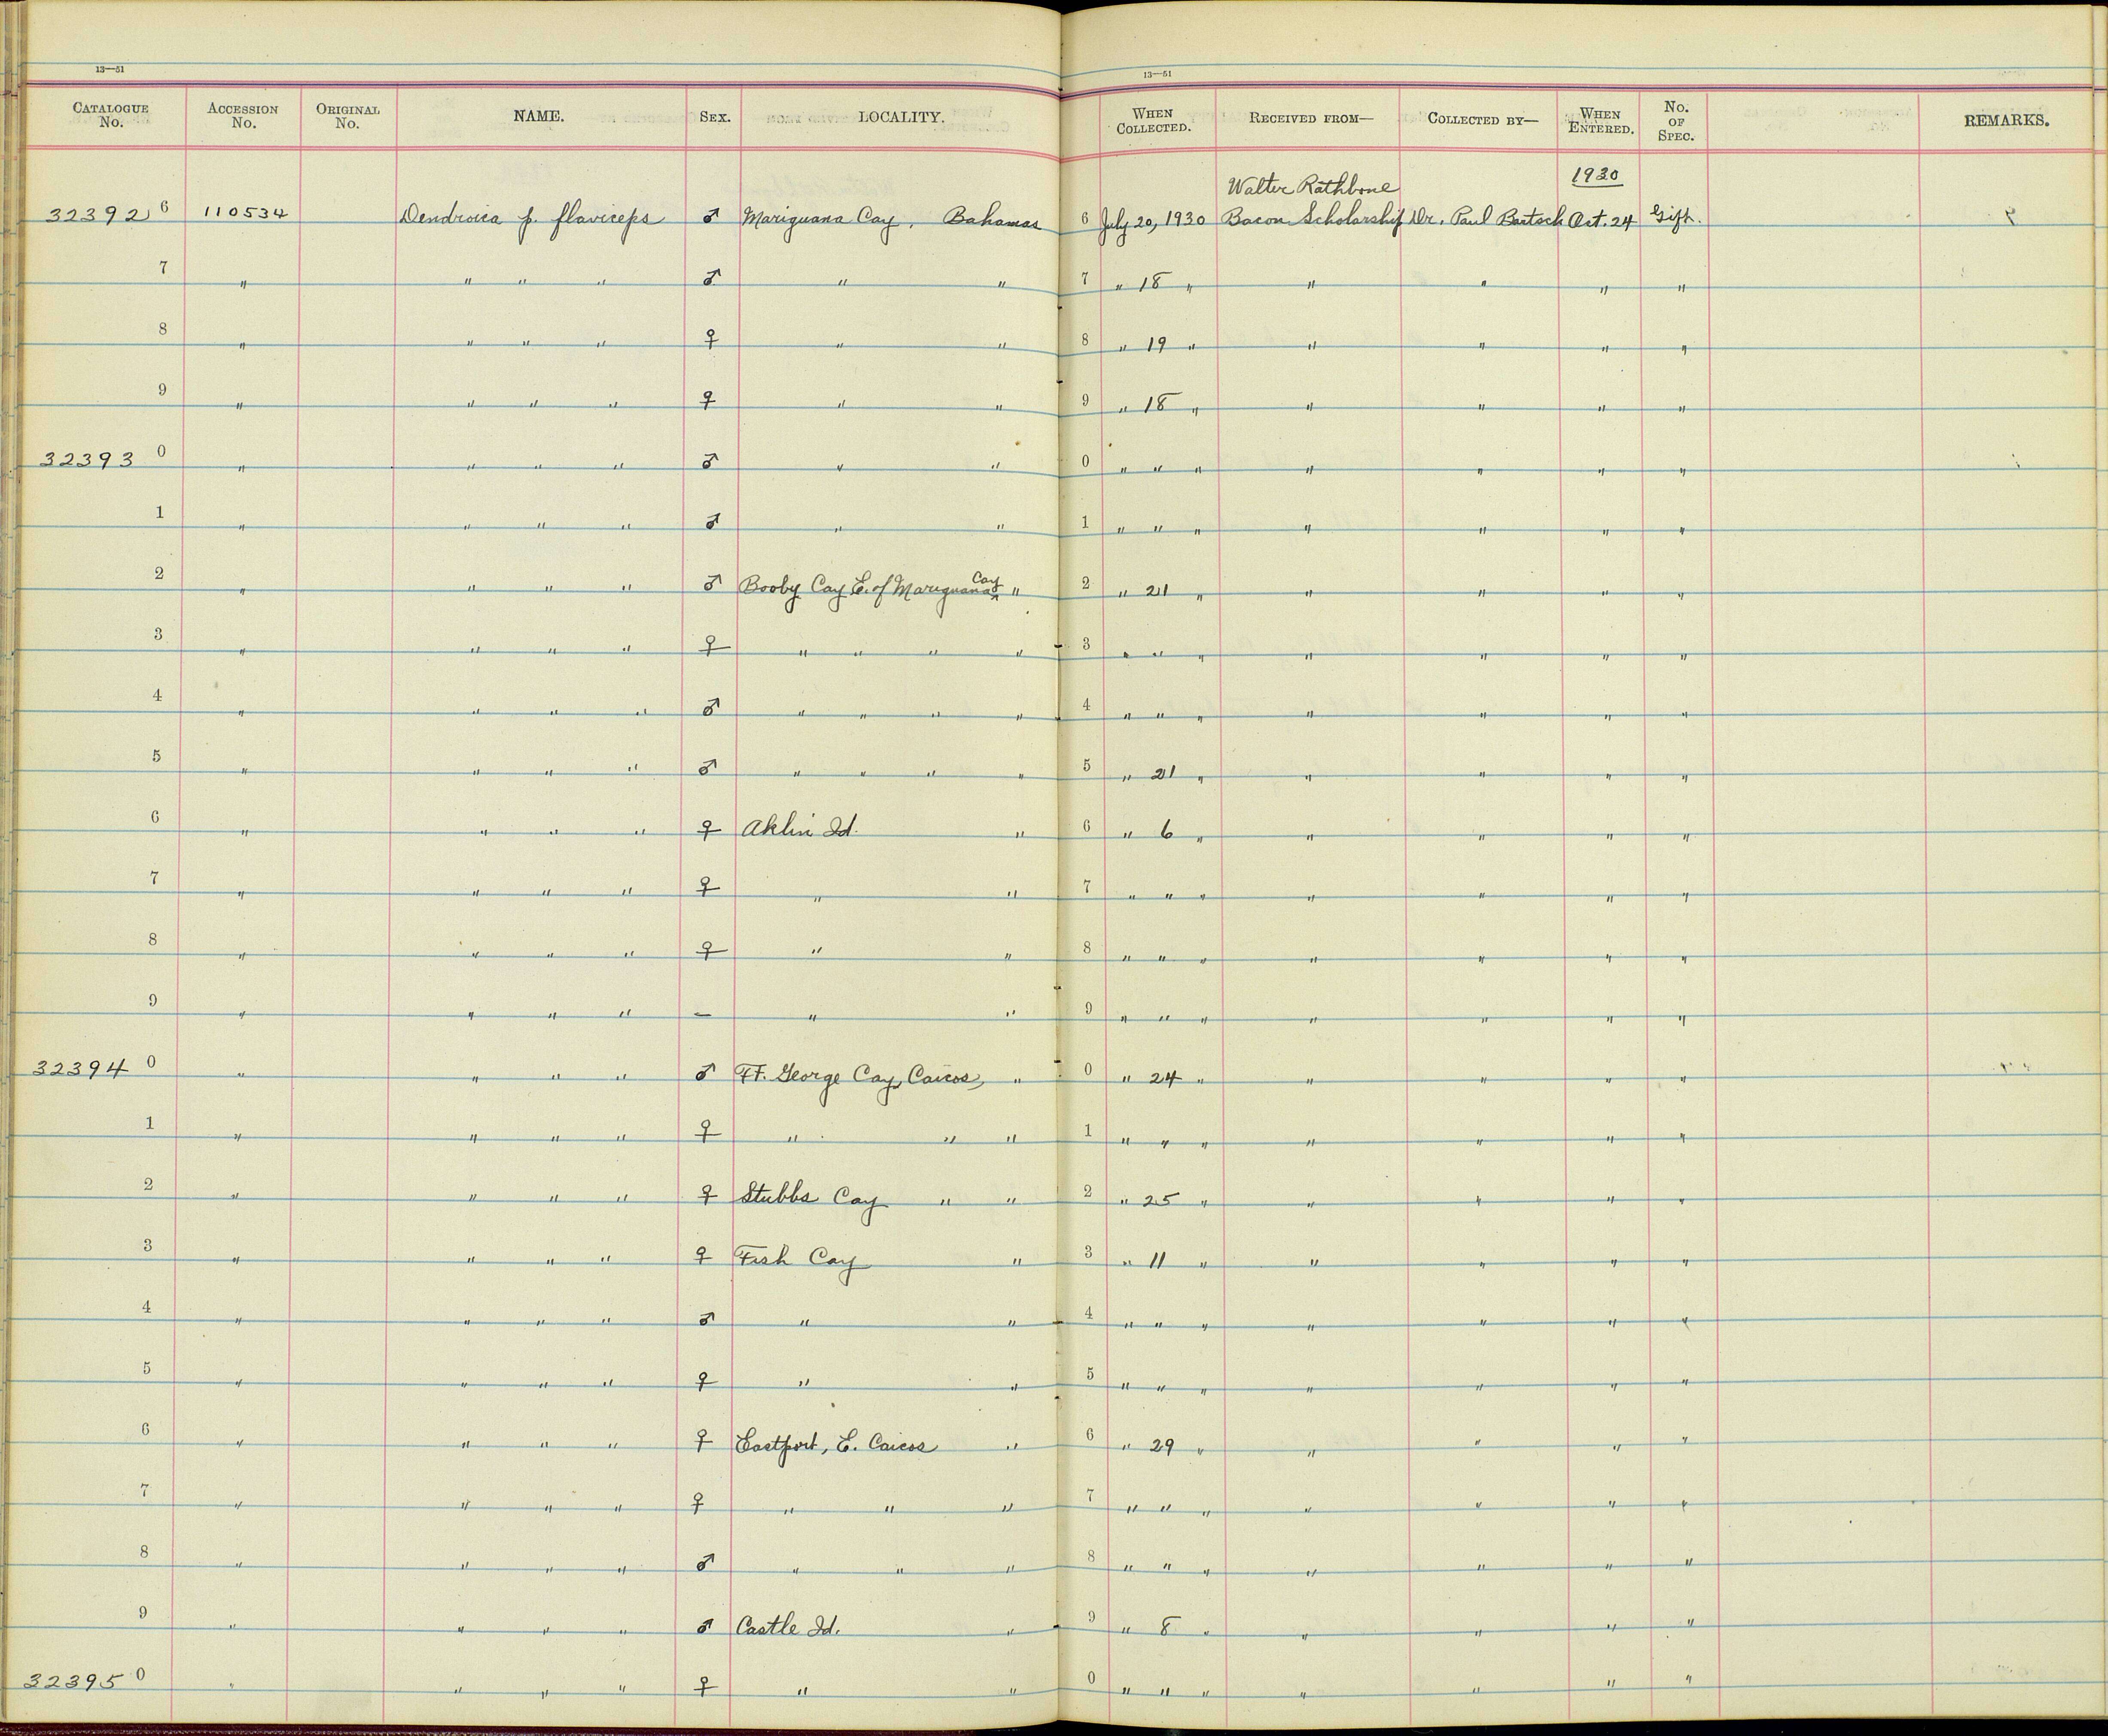 13—51
13—51
CATALOGUE No. ACCESSION No. ORIGINAL No. NAME. SEX. LOCALITY. WHEN COLLECTED. RECEIVED FROM— COLLECTED BY— WHEN ENTERED. No. OF SPEC. REMARKS.
Walter Rathbone 1930
32392 6 110534 Dendroica p. flaviceps ♂ Mariguana Cay, Bahamas 6 July 20, 1930 Bacon Scholarship Dr. Paul Bartsch Oct. 24 Gift.
7 " " " " ♂ " " 7 " 18 " " " " "
8 " " " " ♀ " " 8 " 19 " " " " "
9 " " " " ♀ " " 9 " 18 " " " " "
32393 0 " " " " ♂ " " 0 " " " " " " "
1 " " " " ♂ " " 1 " " " " " " "
2 " " " " ♂ Booby Cay E. of Mariguana Cay " 2 " 21 " " " " "
3 " " " " ♀ " " " " 3 " " " " " " "
4 " " " " ♂ " " " " 4 " " " " " " "
5 " " " " ♂ " " " " 5 " 21 " " " " "
6 " " " " ♀ Aklin Id. " 6 " 6 " " " " "
7 " " " " ♀ " " 7 " " " " " " "
8 " " " " ♀ " " 8 " " " " " " "
9 " " " " — " " 9 " " " " " " "
32394 0 " " " " ♂ Ft. George Cay, Caicos, " 0 " 24 " " " " "
1 " " " " ♀ " " " 1 " " " " " " "
2 " " " " ♀ Stubbs Cay " " 2 " 25 " " " " "
3 " " " " ♀ Fish Cay " 3 " 11 " " " " "
4 " " " " ♂ " " 4 " " " " " " "
5 " " " " ♀ " " 5 " " " " " " "
6 " " " " ♀ Eastport, E. Caicos " 6 " 29 " " " " "
7 " " " " ♀ " " " 7 " " " " " " "
8 " " " " ♂ " " " 8 " " " " " " "
9 " " " " ♂ Castle Id. " 9 " 8 " " " " "
32395 0 " " " " ♀ " " 0 " " " " " " "